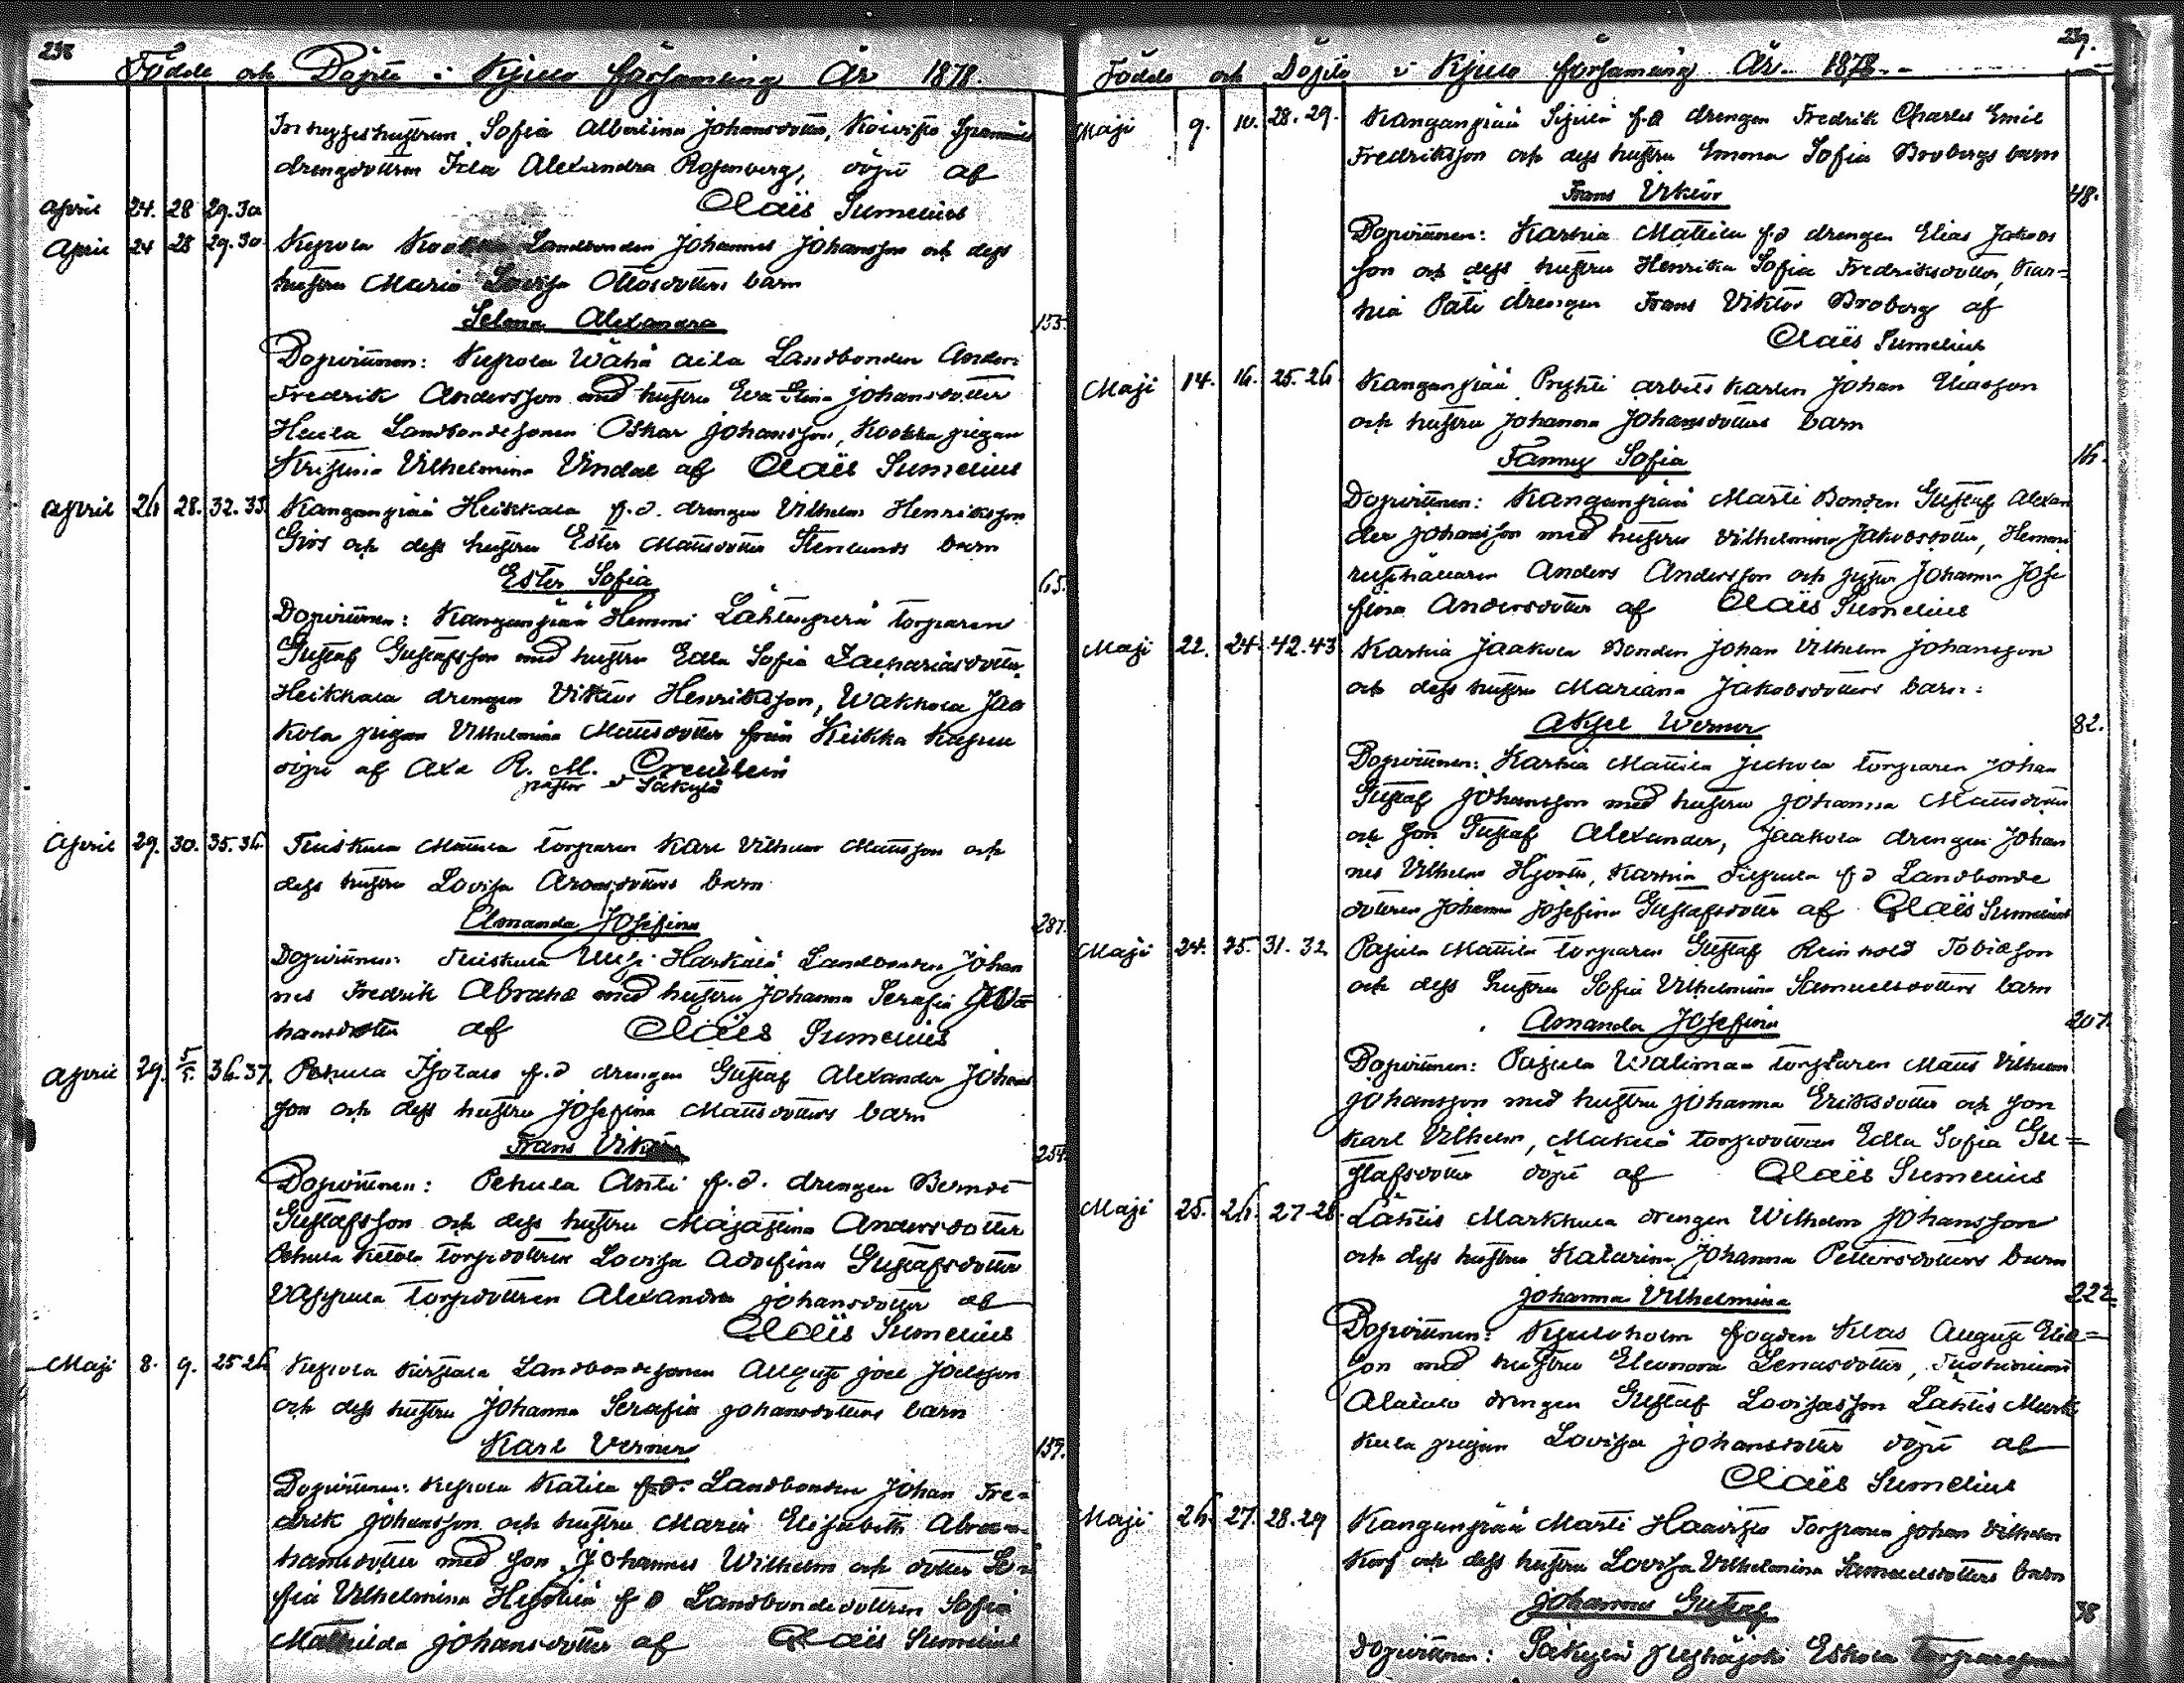 238
Födde och Döpte i Kjulo församling År 1878.
Inhyseshustrun Sofia Albertina Johansdotter, Koivisto
drengdottren Ida Alexandra Rosenberg, döpt af
April 24. 28 29.30 Claës Sumelius
April 24 28 29.30 Kepola Landbonden Johannes Johansson och dess
hustru Maria Lovisa Ottosdotters barn
Selma Alexandra 155.
Dopvittnen: Kepola Wähä Landbonden Anders
Fredrik Andersson med hustru Eva Stina Johansdotter
Heila Landbondesonen Oskar Johansson, Kookka pigan
Kristina Vilhelmina Vindal af Claës Sumelius
April 26 28. 32.33 Kanganpää Heikkala f.d. drengen Vilhelm Henriksson
och dess hustru Ester Mattsdotter Stenlunds barn
Ester Sofia 65.
Dopvittnen: Kanganpää Hemmi Lähtenperä torparen
Gustaf Gustafsson med hustru Edla Sofia Zachariasdotter,
Heikkala drengen Viktor Henriksson, Wakkola Jaa
kola pigan Vilhelmina Mattsdotter från Keikka
döpt af Axel R. M. Creutlein
pastor i Säkylä
April 29. 30. 35.36. Tuiskula Mattila torparen Karl Vilhelm Mattsson och
dess hustru Lovisa Aronsdotters barn
Amanda Josefina 287.
Dopvittnen: Tuiskula Uusi Harkälä Landbonden Johan
nes Fredrik Abrahs med hustru Johanna Serafia Jo
hansdotter af Claës Sumelius
April 29. 5/5. 36.37. Pehula Isotalo f.d drengen Gustaf Alexander Johans
son och dess hustru Josefina Mattsdotters barn
Frans Viktor 254.
Dopvittnen: Pehula Antti f.d. drengen Berndt
Gustafsson och dess hustru Majastina Andersdotter
Pehula Ketola torpdottren Lovisa Adolfina Gustafsdotter
torpdottren Alexandra Johansdotter af
Claës Sumelius
Maji 8. 9. 25-26 Kepola Landbondesonen August Joel Joelsson
och dess hustru Johanna Serafia Johansdotters barn
Karl Verner 159.
Dopvittnen: Kepola Katila f.d. Landbonden Johan Fre-
drik Johansson och hustru Maria Elisabeth Abra-
hamsdotter med son Johannes Wilhelm och dotter So
fia Vilhelmina f d Landbondedottren Sofia
Mathilda Johansdotter af Claës Sumelius
239.
Födde och Döpte i Kjulo församling År 1878.
Maji 9. 10. 28.29. Kanganpää f.d drengen Fredrik Charles Emil
Fredriksson och dess hustru Emma Sofia Brobergs barn
Frans Viktor 48.
Dopvittnen: Karhia Mattila f.d drengen Elias Jakobs
son och dess hustru Henrika Sofia Fredriksdotter, Kar=
hia Päti drengen Frans Viktor Broberg af
Claës Sumelius
Maji 14. 16. 25.26 Kanganpää arbetskarlen Johan Eliasson
och hustru Johanna Johansdotters barn
Fanny Sofia 16.
Dopvittnen: Kanganpää Martti Bonden Gustaf Alexan
der Johansson med hustru Vilhelmina Jakobsdotter, Hemmi
rusthållaren Anders Andersson och Johanna Jose
fina Andersdotter af Claës Sumelius
Maji 22. 24. 42.43 Karhia Jaakola Bonden Johan Vilhelm Johansson
och dess hustru Mariana Jakobsdotters barn:
Aksel Werner 82.
Dopvittnen: Karhia Mattila torparen Johan
Gustaf Johansson med hustru Johanna Mattsdotter
och son Gustaf Alexander, Jaakola drengen Johan
nes Vilhelm Karhia f d Landbonde
dottren Johanna Josefina Gustafsdotter af Claës Sumelius
Maji 24. 25. 31. 32 Pajula Mattila torparen Gustaf Reinhold Tobiasson
och dess hustru Sofia Vilhelmina Samuelsdotters barn
Amanda Josefina 207.
Dopvittnen: Pajula torparen Matts Vilhelm
Johansson med hustru Johanna Eriksdotter och son
Karl Vilhelm, Mäkilä torpdottren Edla Sofia Gu=
stafsdotter döpt af Claës Sumelius
Maji 25. 26. 27-28. Lähtis Markkula drengen Wilhelm Johansson
och dess hustru Katarina Johanna Pettersdotters barn
Johanna Vilhelmina 222.
Dopvittnen: Kjuloholm fogden Klas August Elia=
son med hustru Eleonora Lenasdotter,
drengen Gustaf Lovisasson Lähtis Mark
kula pigan Lovisa Johansdotter döpt af
Claës Sumelius
Maji 26. 27. 28.29 Kanganpää Martti Haavisto Torparen Johan Vilhelm
Korf och dess hustru Lovisa Vilhelmina Samuelsdotters barn
Johannes Gustaf 38
Dopvittnen: Säkylä Eskola